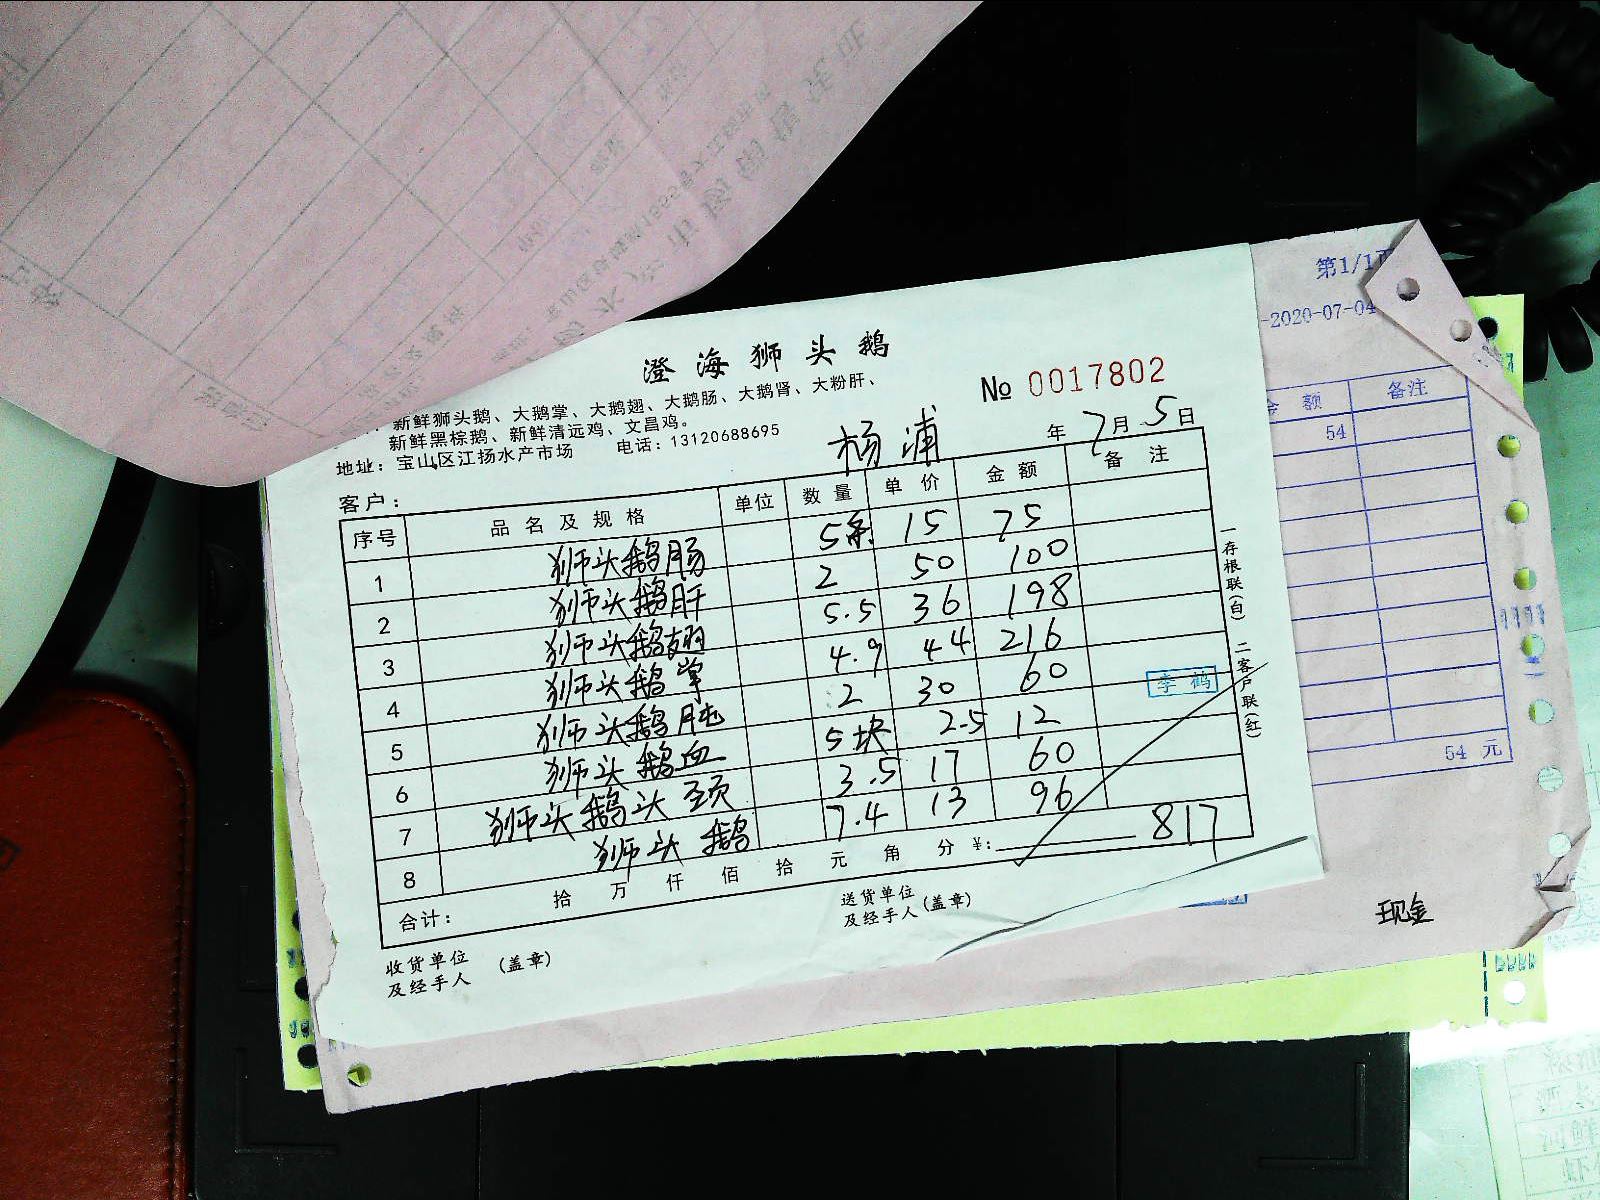 澄海狮头鹅
新鲜狮头鹅、大鹅掌、大鹅翅、大鹅肠、大鹅肾、大粉肝、
新鲜黑棕鹅、新鲜清远鸡、文昌鸡。
地址：宝山区江扬水产市场 电话：13120688695
№ 0017802
杨浦
年 7月 5日
客户：
序号 品名及规格 单位 数量 单价 金额 备注
1 狮头鹅肠 5条 15 75
2 狮头鹅肝 2 50 100
3 狮头鹅翅 5.5 36 198
4 狮头鹅掌 4.9 44 216
5 狮头鹅肫 2 30 60
6 狮头鹅血 5块 2.5 12
7 狮头鹅头颈 3.5 17 60
8 狮头鹅 7.4 13 96
合计： 拾 万 仟 佰 拾 元 角 分 ¥: 817
李鹤
一存根联(白) 二客户联(红)
收货单位
及经手人 (盖章)
送货单位
及经手人 (盖章)
第1/1页
-2020-07-04
金额 备注
54
54 元
现金